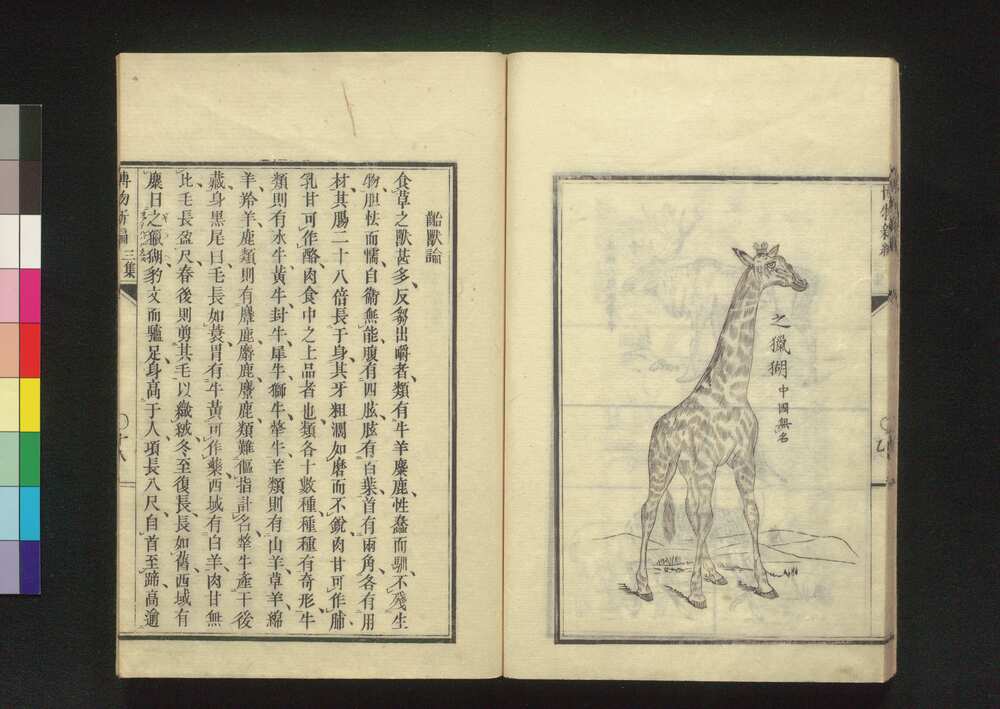 博物新編
之獵猢
中國無名
齝獸論
食草之獸甚多、反芻出嚼者、類有牛羊麋鹿、性蠢而馴、不殘生
物、胆怯而懦、自衛無能、腹有四胘、胘有百葉、首有兩角、各有用
材、其腸二十八倍長于身、其牙粗濶如磨而不銳、肉甘可作脯、
乳甘可作酪、肉食中之上品者也、類各十數種、種種有奇形、牛
類則有水牛、黃牛、封牛、犀牛、獅牛、犛牛、羊類則有山羊、草羊、綿
羊、羚羊、鹿類則有麈鹿、麝鹿、麞鹿、類難傴指計名、犛牛產于後
藏、身黑尾曰、毛長如蓑、胃有牛黃、可作藥、西域有白羊、肉甘無
比、毛長盈尺、春後則剪其毛以織絨、冬至復長、長如舊、西域有
麋、日之獵猢、豹文而驢足、身高于人、項長八尺、自首至蹄、高逾
博物新編 三集
十八